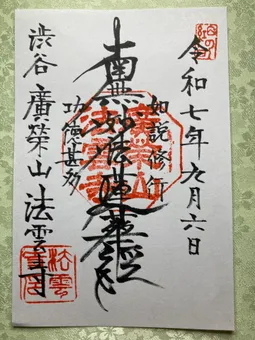 令和七年九月六日
如説修行
南無妙法蓮華経
功徳甚多
渋谷 廣榮山 法雲寺
廣榮山
法雲寺